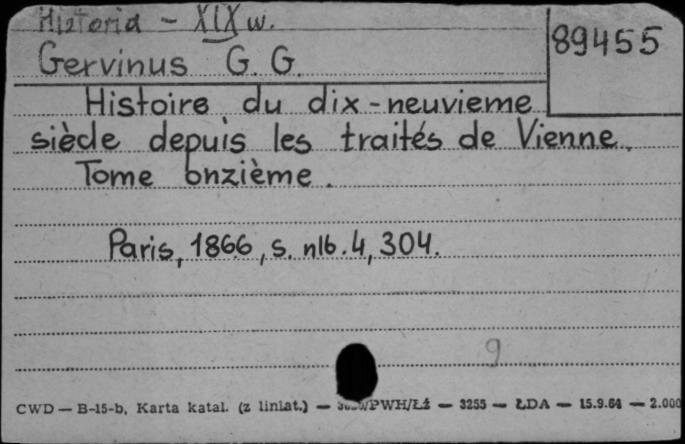 Historia - XIX w.
89455
Gervinus G. G.
Histoire du dix-neuvieme
siècle depuis les traités de Vienne.
Tome onzième.
Paris, 1866, s. nlb. 4, 304.
9
CWD — B-15-b, Karta katal. (z liniat.) — /PWH/Łź — 3255 — ŁDA — 15.9.64 — 2.000